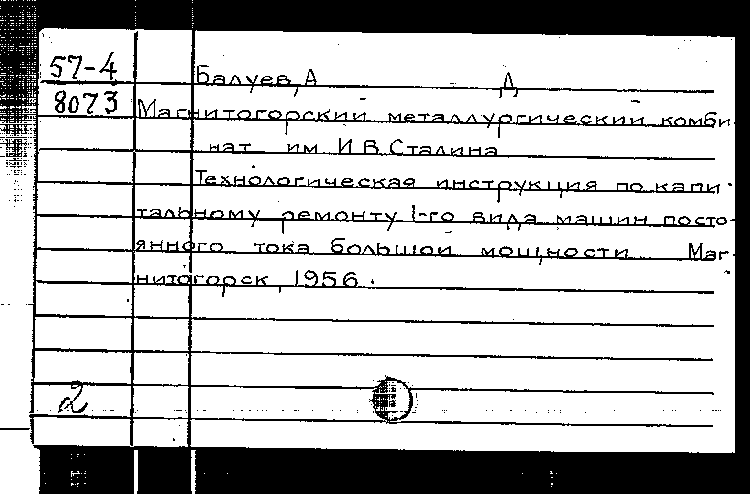 57-4
Балуев, А Д
8073
Магнитогорский металлургический комби-
нат им И.В.Сталина
Технологическая инструкция по капи-
тальному ремонту 1-го вида машин посто-
янного тока большой мощности Маг-
нитогорск, 1956.
2